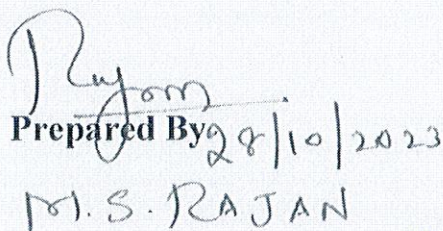 Rajan
Prepared By 28/10/2023
M.S. RAJAN